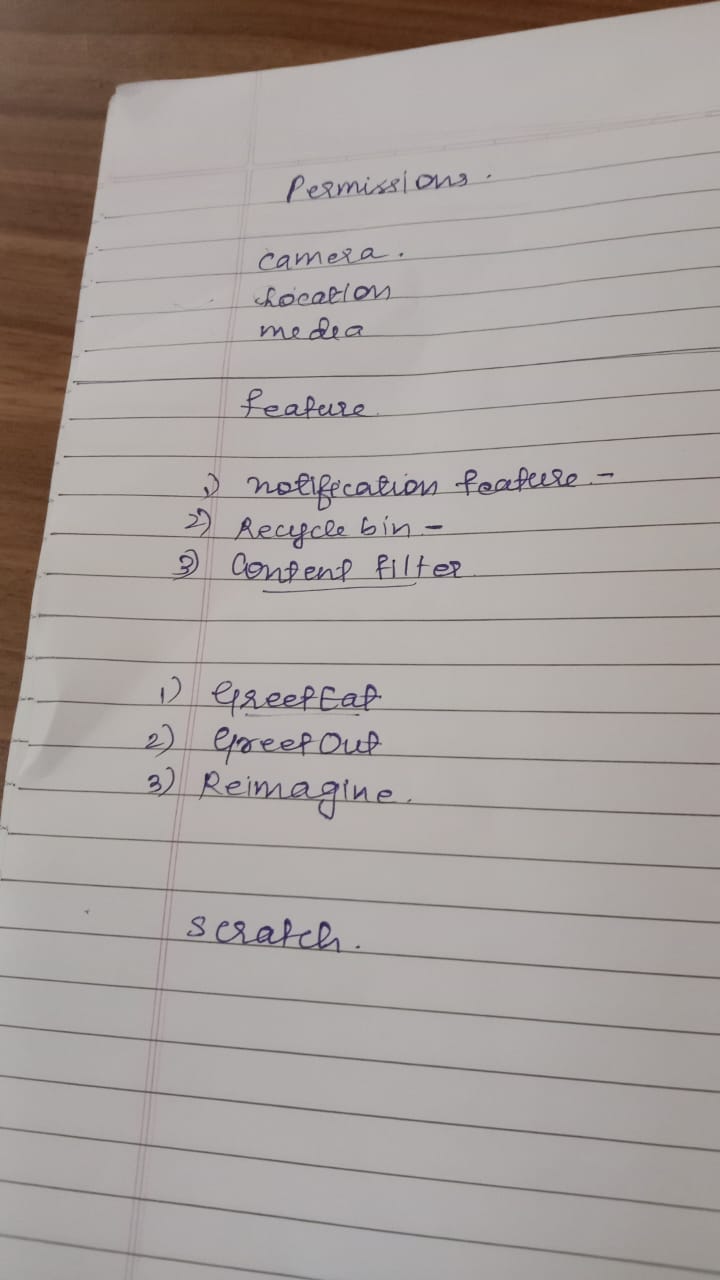 Permissions.
camera.
Location
media
feature
1) notification feature -
2) Recycle bin -
3) Content filter
1) GreetEat
2) Greet Out
3) Reimagine.
scratch.